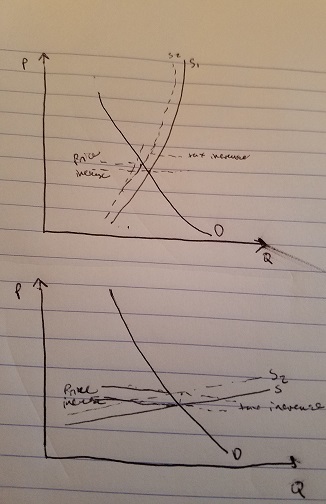 P
S2 S1
Price
increase
tax increase
D
Q
P
S2
S
Price
increase
tax increase
D
Q